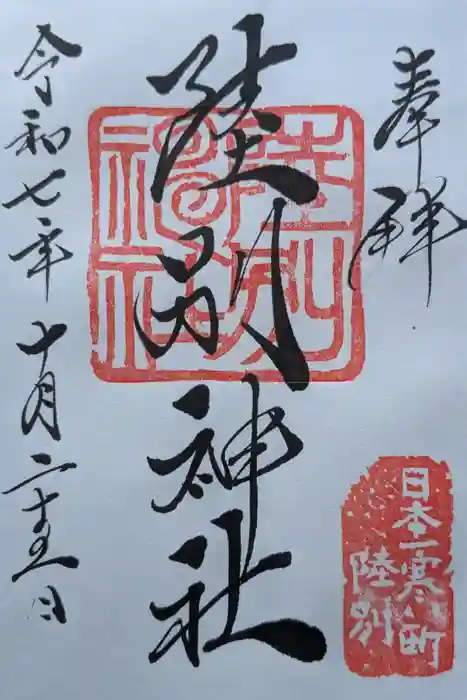 奉拝
陸別神社
令和七年十月二十五日
陸別神社
日本一寒い町
陸別